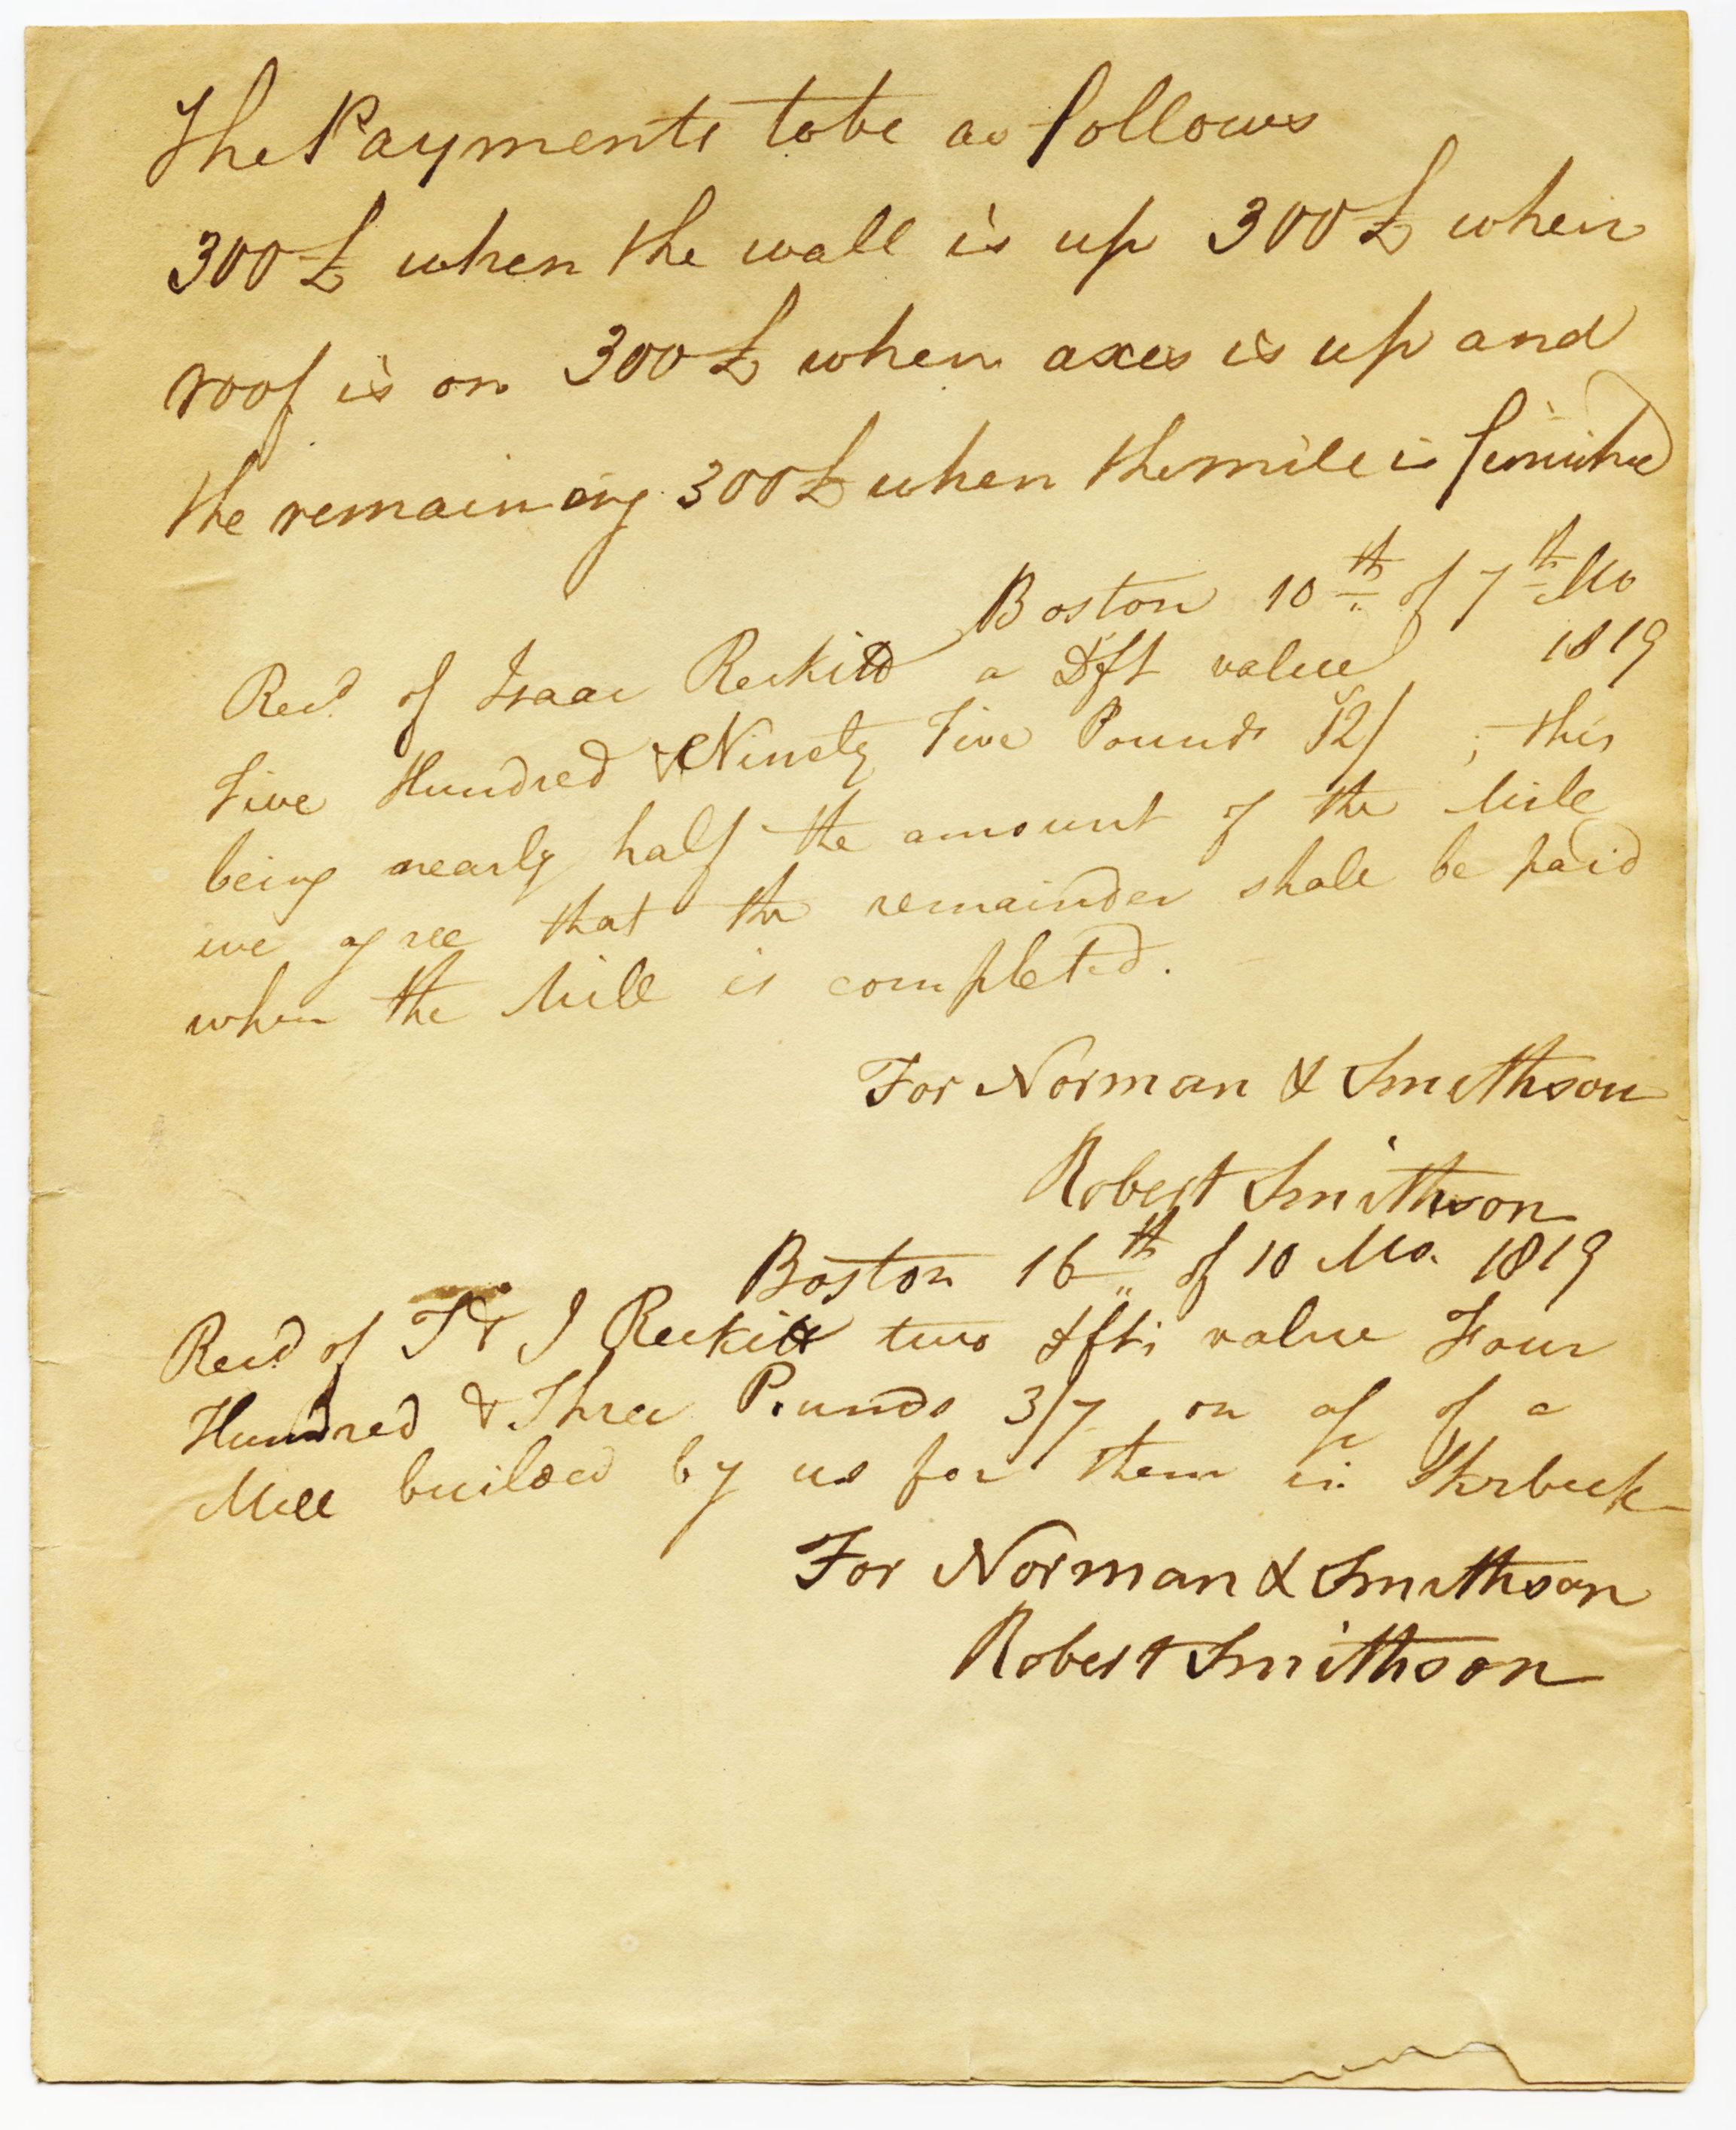 The Payments to be as follows
300£ when the wall is up 300£ when
roof is on 300£ when axes is up and
the remaining 300£ when the mill is finished
Boston 10th of 7th Mo
1819
Recd of Isaac Reckitt a Dft value
Five Hundred & Ninety Five Pounds 12/ ; this
being nearly half the amount of the Mill
we agree that the remainder shall be paid
when the Mill is completed.
For Norman & Smithson
Robert Smithson
Boston 16th of 10 Mo. 1819
Recd of T & I Reckitt two dfts value Four
Hundred & Three Pounds 3/7 on of a
Mill builded by us for them in Skirbeck
For Norman & Smithson
Robert Smithson